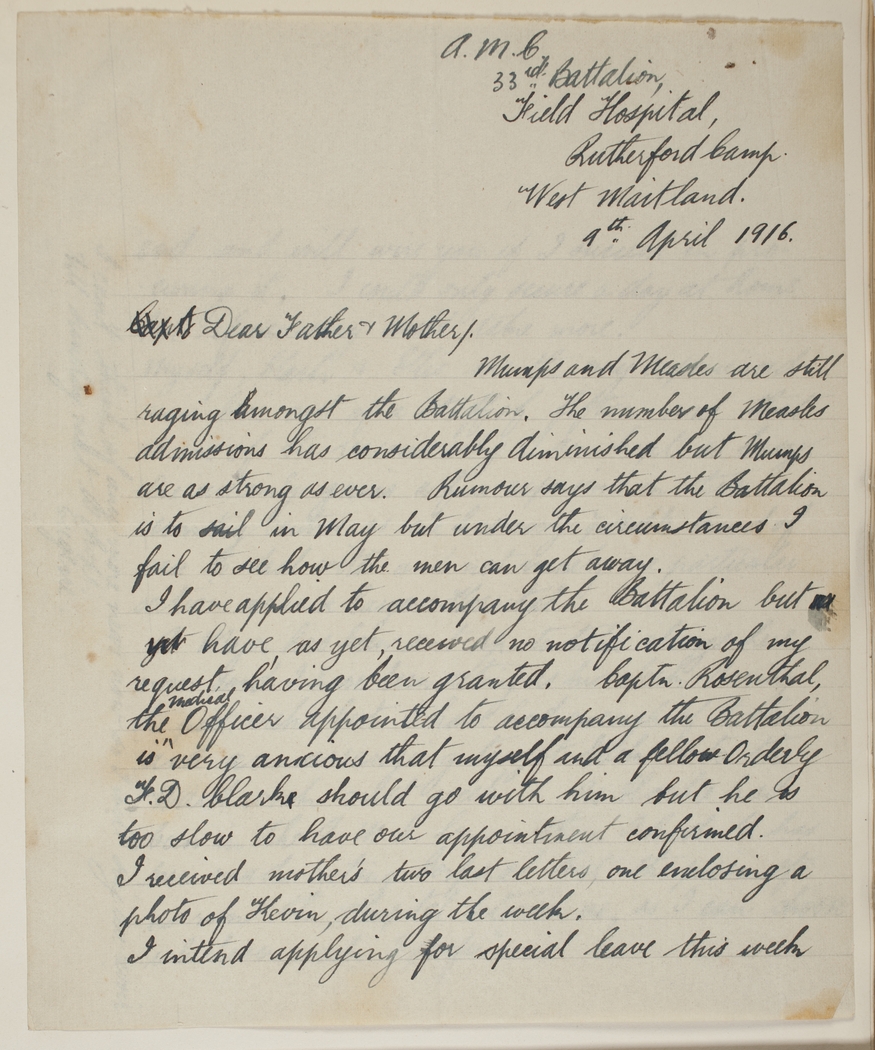 A. M. C
33rd Battalion,
Field Hospital,
Rutherford Camp.
West Maitland.
9th April 1916.
Dear Father & Mother/.
Mumps and Measles are still
raging amongst the Battalion. The number of Measles
admissions has considerably diminished but Mumps
are as strong as ever. Rumour says that the Battalion
is to sail in May but under the circumstances I
fail to see how the men can get away.
I have applied to accompany the Battalion but
yet have, as yet, received no notification of my
request, having been granted. Captn. Rosenthal,
the Medical Officer appointed to accompany the Battalion
is very anxious that myself and a fellow Orderly
F. D. Clarke should go with him but he is
too slow to have our appointment confirmed.
I received mother's two last letters, one enclosing a
photo of Kevin, during the week.
I intend applying for special leave this week